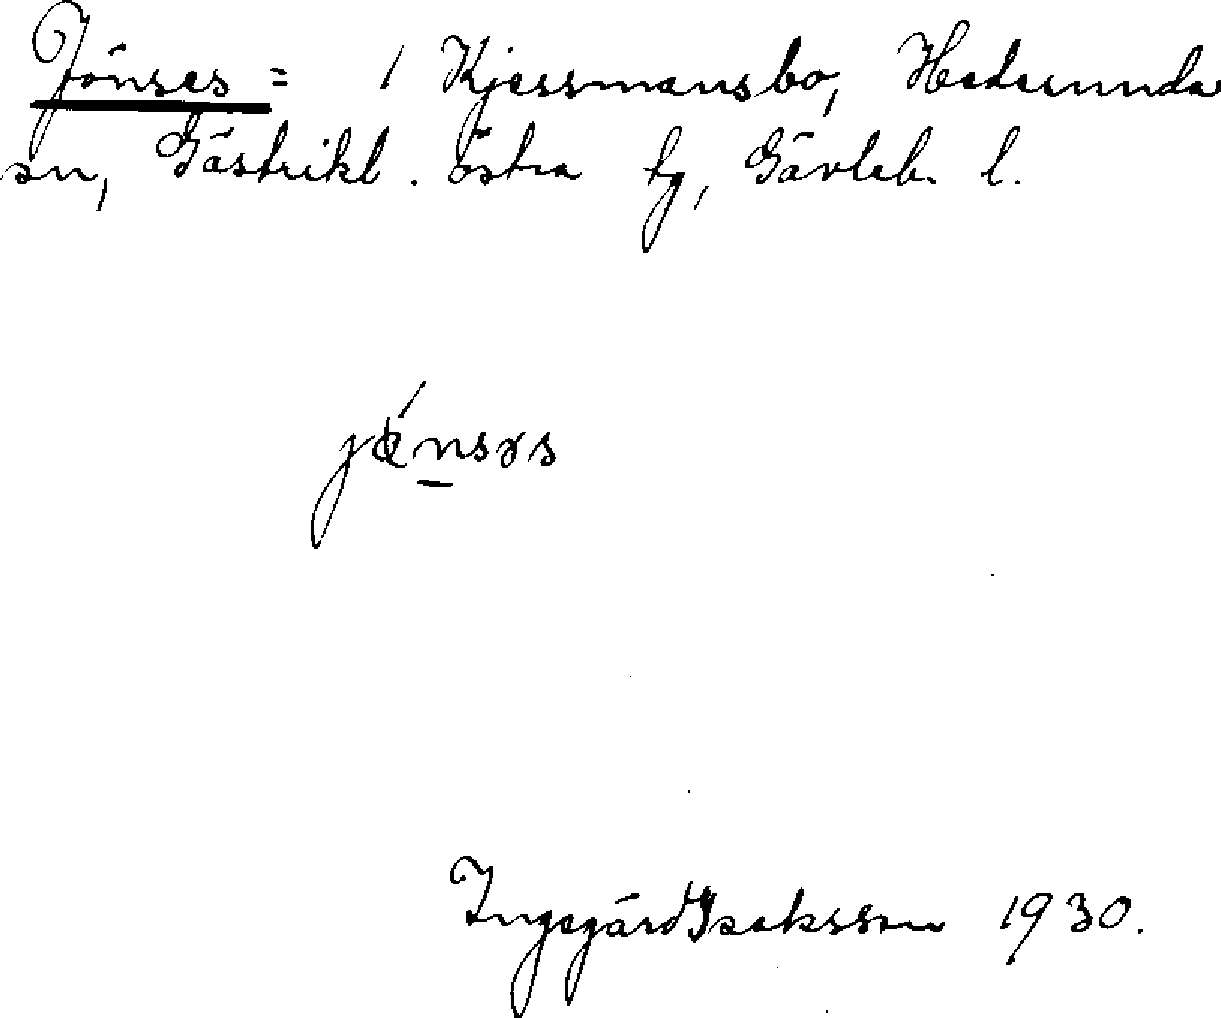 Jönses = 1 Kjessmansbo, Hedesunda
sn, Gästrikl. östra tg, Gävleb. l.
jönsəs
Ingegärd Isaksson 1930.